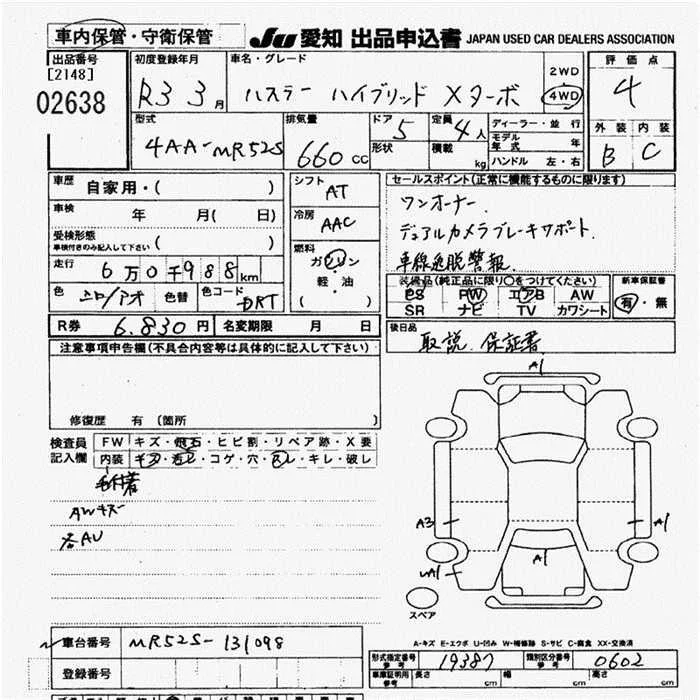 車内保管・守衛保管
JU 愛知 出品申込書 JAPAN USED CAR DEALERS ASSOCIATION
出品番号 [2148] 02638
初度登録年月 R3 3月
車名・グレード ハスラー ハイブリッド Xターボ
2WD 4WD
評価点 4
型式 4AA-MR52S
排気量 660 CC
ドア 5 形状
定員 4人 積載 kg
ディーラー・並行
モデル年式 年
ハンドル 左・右
外装 内装
B C
車歴 自家用・( )
シフト AT
セールスポイント(正常に機能するものに限ります)
車検 年 月( 日)
冷房 AAC
ワンオーナー、
受検形態 車検付きのみ記入して下さい ( )
デュアルカメラブレーキサポート、
燃料 ガソリン・軽油 ( )
車線逸脱警報
走行 6万0千988km
装備品(純正品に限り○をつけてください)
新車保証書 有・無
色 色替 色コード DRT
PS PW エアB AW
SR ナビ TV カワシート
R券 6.830円 名変期限 月 日
後日品 取説、保証書
注意事項申告欄(不具合内容等は具体的に記入して下さい)
修復歴 有 (箇所 )
検査員記入欄
FW キズ・飛石・ヒビ割・リペア跡・X要
内装 キズ・汚れ・コゲ・穴・スレ・キレ・破レ
AWキズ
各AU
A1
A3
A1
A1
スペア
A-キズ E-エクボ U-凹み W-補修跡 S-サビ C-腐食 XX-交換済
車台番号 MR52S-131098
登録番号
形式指定番号 参考 19387
類別区分番号 参考 0602
車庫証明用 参考 長さ cm 幅 cm 高さ cm